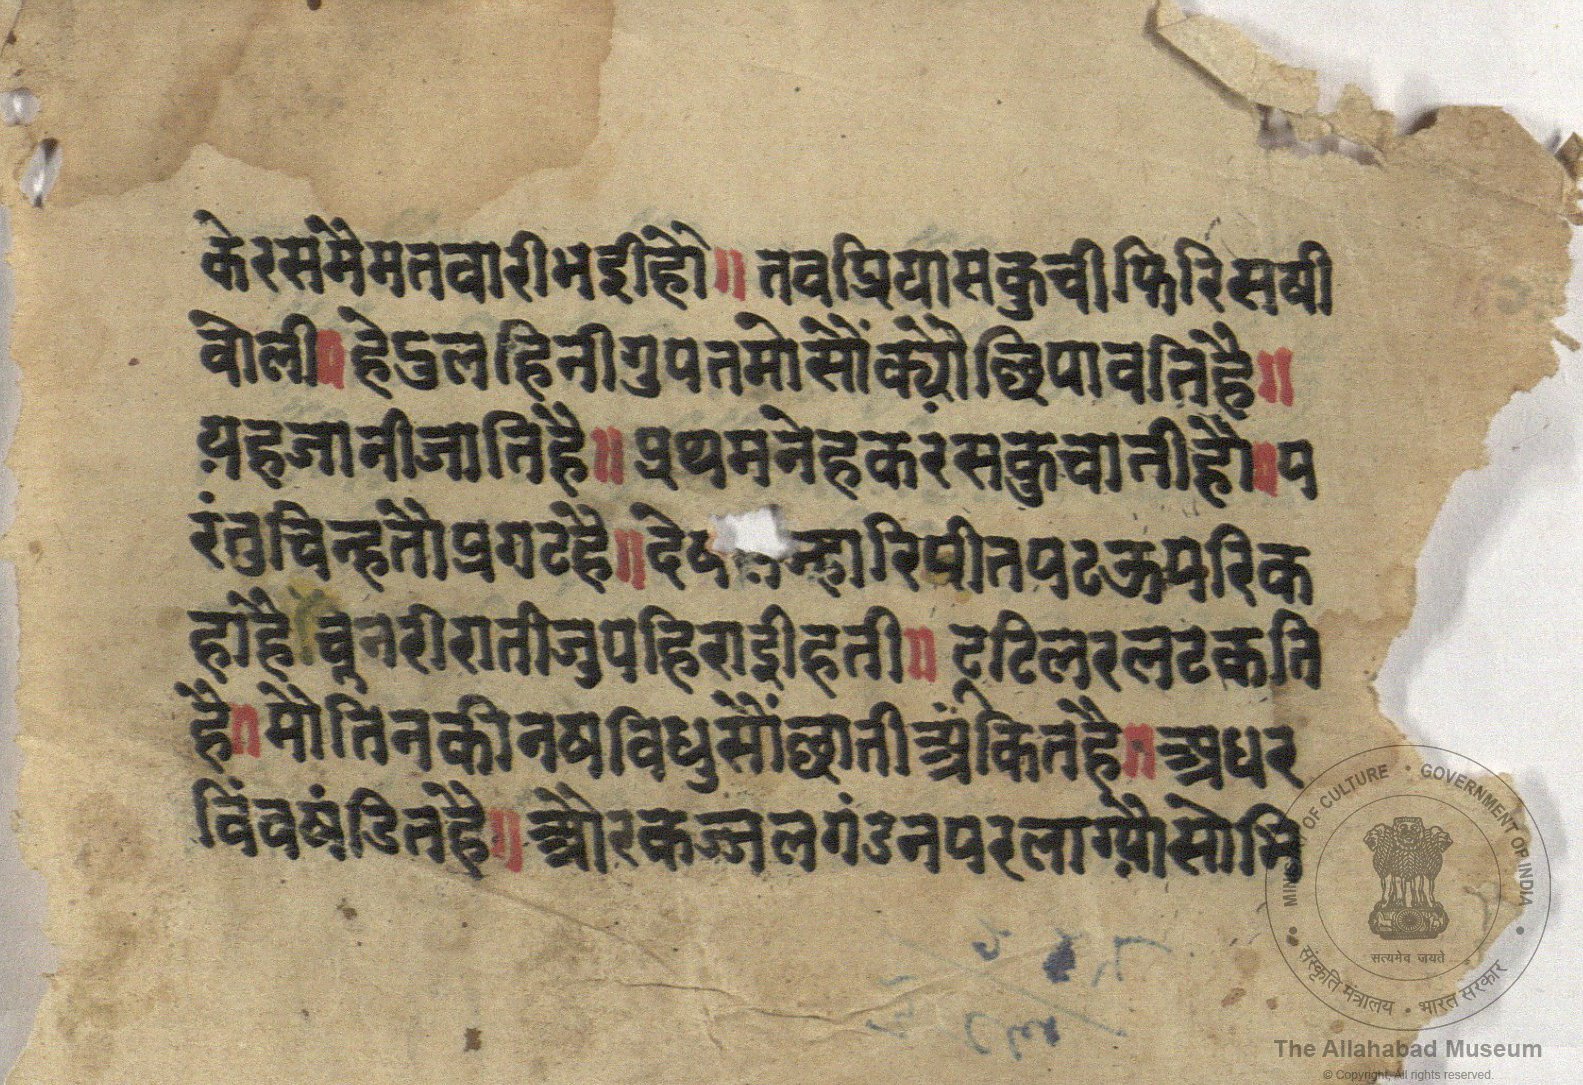 केरसमैमतवारीभईहौ॥ तवप्रियासकुचीफिरिसषी
वोली॥हेऽलहिनीगुपतमोसौंक्यौछिपावतिहै॥
यहजानीजातिहै॥प्रथमनेहकरसकुचानीहौ॥प
रंतुचिन्हतौप्रगटहै॥देष न्हारिपीतपटऊपरिक
हाहै॥चुनरीरातीजुपहिराईहती॥ टूटिलरलटकति
है॥मोतिनकीनषविधुसौंछातीअंकितहै॥अधर
विंवषंडितहै॥औरकज्जलगंडनपरलाग्यौसोभि
MINISTRY OF CULTURE • GOVERNMENT OF INDIA
सत्यमेव जयते
संस्कृति मंत्रालय • भारत सरकार
The Allahabad Museum
© Copyright, All rights reserved.